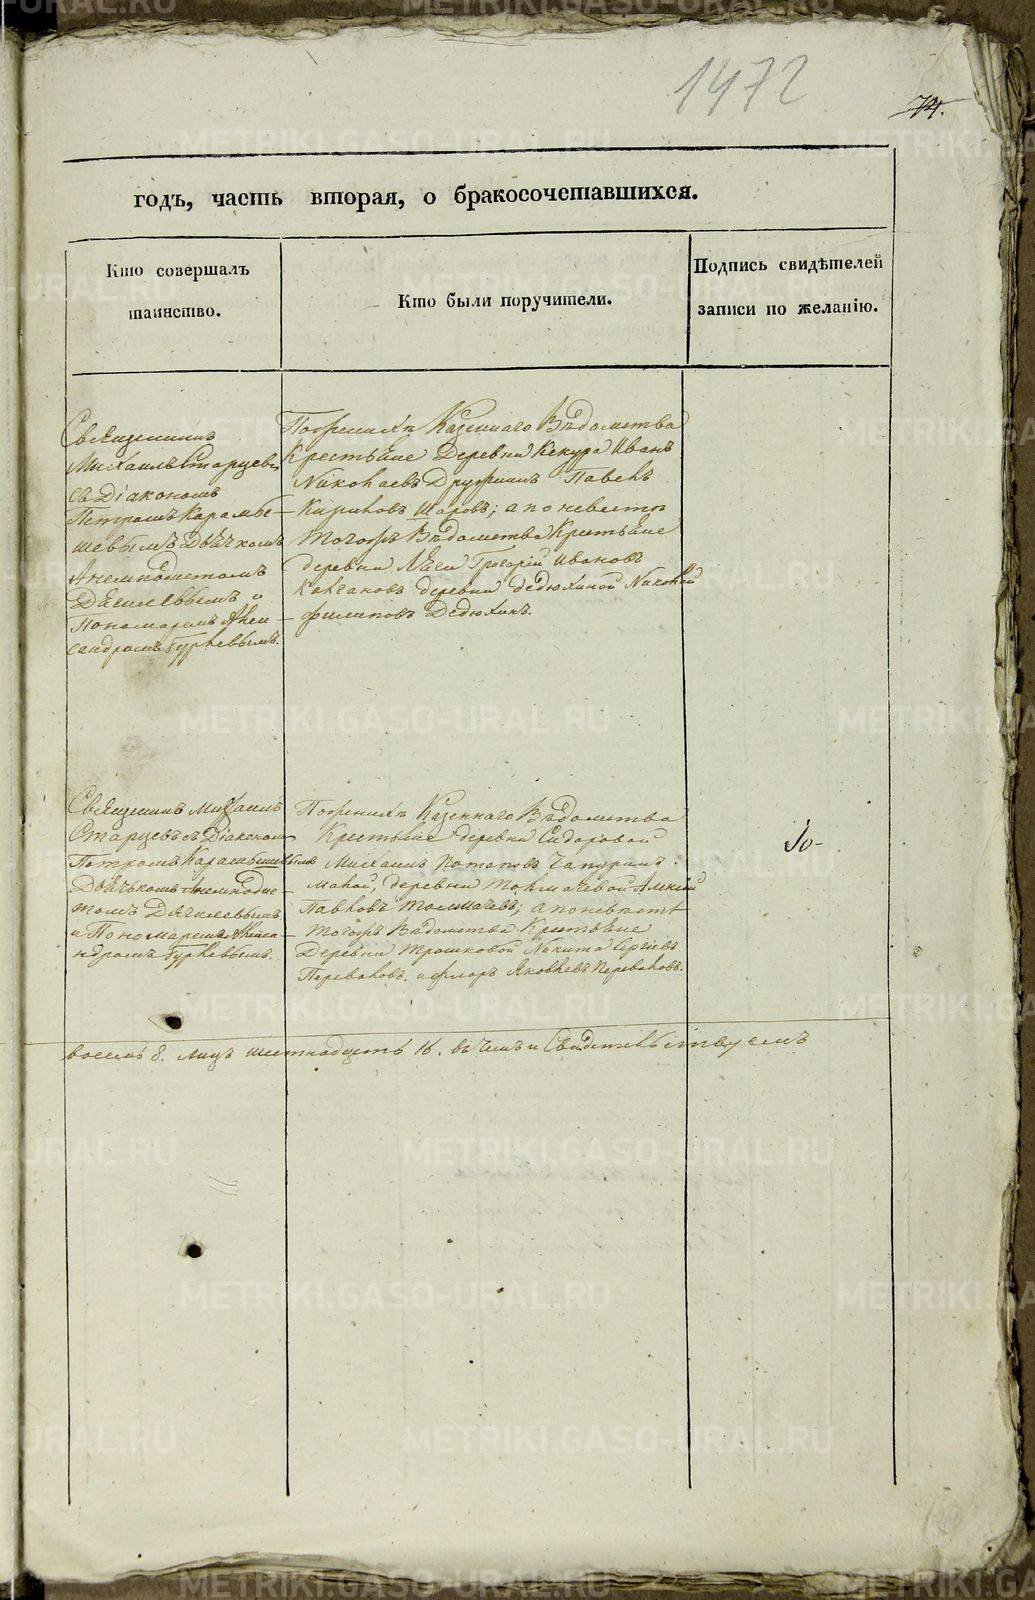 1472
74.
годъ, часть вторая, о бракосочетавшихся.
Кто совершалъ
таинство.
Кто были поручители.
Подпись свидѣтелей
записи по желанію.
Священникъ
Михаилъ Старцевъ
съ Діакономъ
Петромъ Карамы-
шевымъ Дьячкомъ
и
Пономаремъ Алек-
сандромъ Гурьевымъ.
По женихѣ Казеннаго Вѣдомства
Крестьяне Деревни Кекура Иванъ
Николаевъ Дружинин Павелъ
Кириловъ Шаровъ; а по невестѣ
тогожъ Вѣдомства Крестьяне
деревни Григорій Ивановъ
деревни Дедюхиной
Филиповъ Дедюхинъ.
Священникъ Михаилъ
Старцевъ съ Діакономъ
Петромъ Карамышевымъ
Дьячькомъ
и Пономаремъ Алекса-
ндромъ Гурьевымъ.
По женихѣ Казеннаго Вѣдомства
Крестьяне деревни Сидоровой
Михаилъ Потаповъ
деревни Толмачевой
Павловъ Толмачевъ; а по невестѣ
тогожъ Вѣдомства Крестьяне
Деревни Трошковой Никита Сергѣевъ
Переваловъ. и Флоръ Яковлевъ Переваловъ.
восемь 8. лицъ шестнадцать 16. въ чемъ и Свидетельствуемъ
METRIKI.GASO-URAL.RU